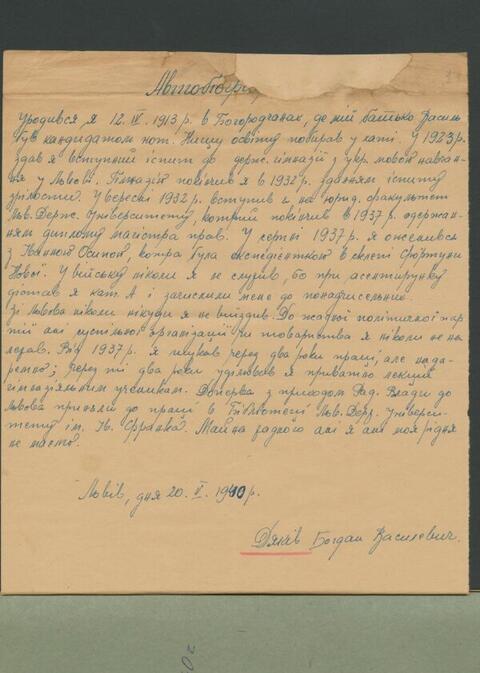 Автобіогра
Уродився я 12. IV. 1913 р. в Богородчанах, де мій батько Василь
був кандидатом нот. Нищу освіту побирав у хаті. У 1923 р.
здав я вступний іспит до держ. гімназії з укр. мовою навчан-
ня у Львові. Гімназію покінчив я в 1932 р. зданням іспиту
зрілости. У вересні 1932 р. вступив я на юрид. факультет
Льв. Держ. Університету, котрий покінчив в 1937 р. одержан-
ням диплому магістра прав. У серпні 1937 р. я оженився
з Іванною Осипой, котра була експедієнткою в склепі Фортуни
Нової. У війську ніколи я не служив, бо при асентерунку
дістав я кат. А і зачислили мене до понадчисельних.
Зі Львова ніколи нікуди я не виїздив. До жадної політичної пар-
тії ані суспільної організації чи товариства я ніколи не на-
лежав. Від 1937 р. я шукав через два роки праці, але нада-
ремно; через ті два роки уділював я приватно лекції
гімназіяльним ученикам. Доперва з приходом Рад. Влади до
Львова приняли до праці в Бібліотеці Льв. Держ. Універси-
тету ім. Ів. Франка. Майна жадного ані я ані моя рідня
не маємо.
Львів, дня 20. V. 1940 р.
Дяків Богдан Василевич.